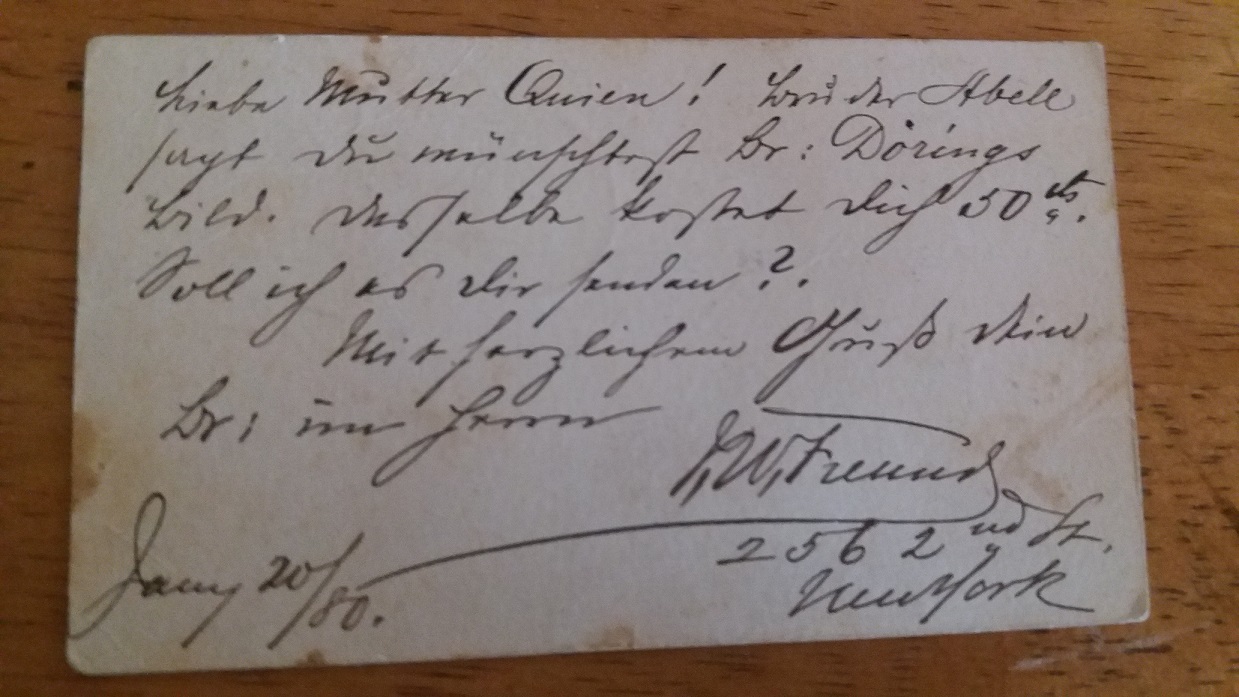 Liebe Mutter Quien! Bruder Abele
sagt du wünschtest Br: Dörings
Bild. Dasselbe kostet dich 50 cts.
Soll ich es dir senden?.
Mit herzlichem Gruß dein
Br: im Herrn
W. Freund
256 2nd St.
New York
Jany 20/80.